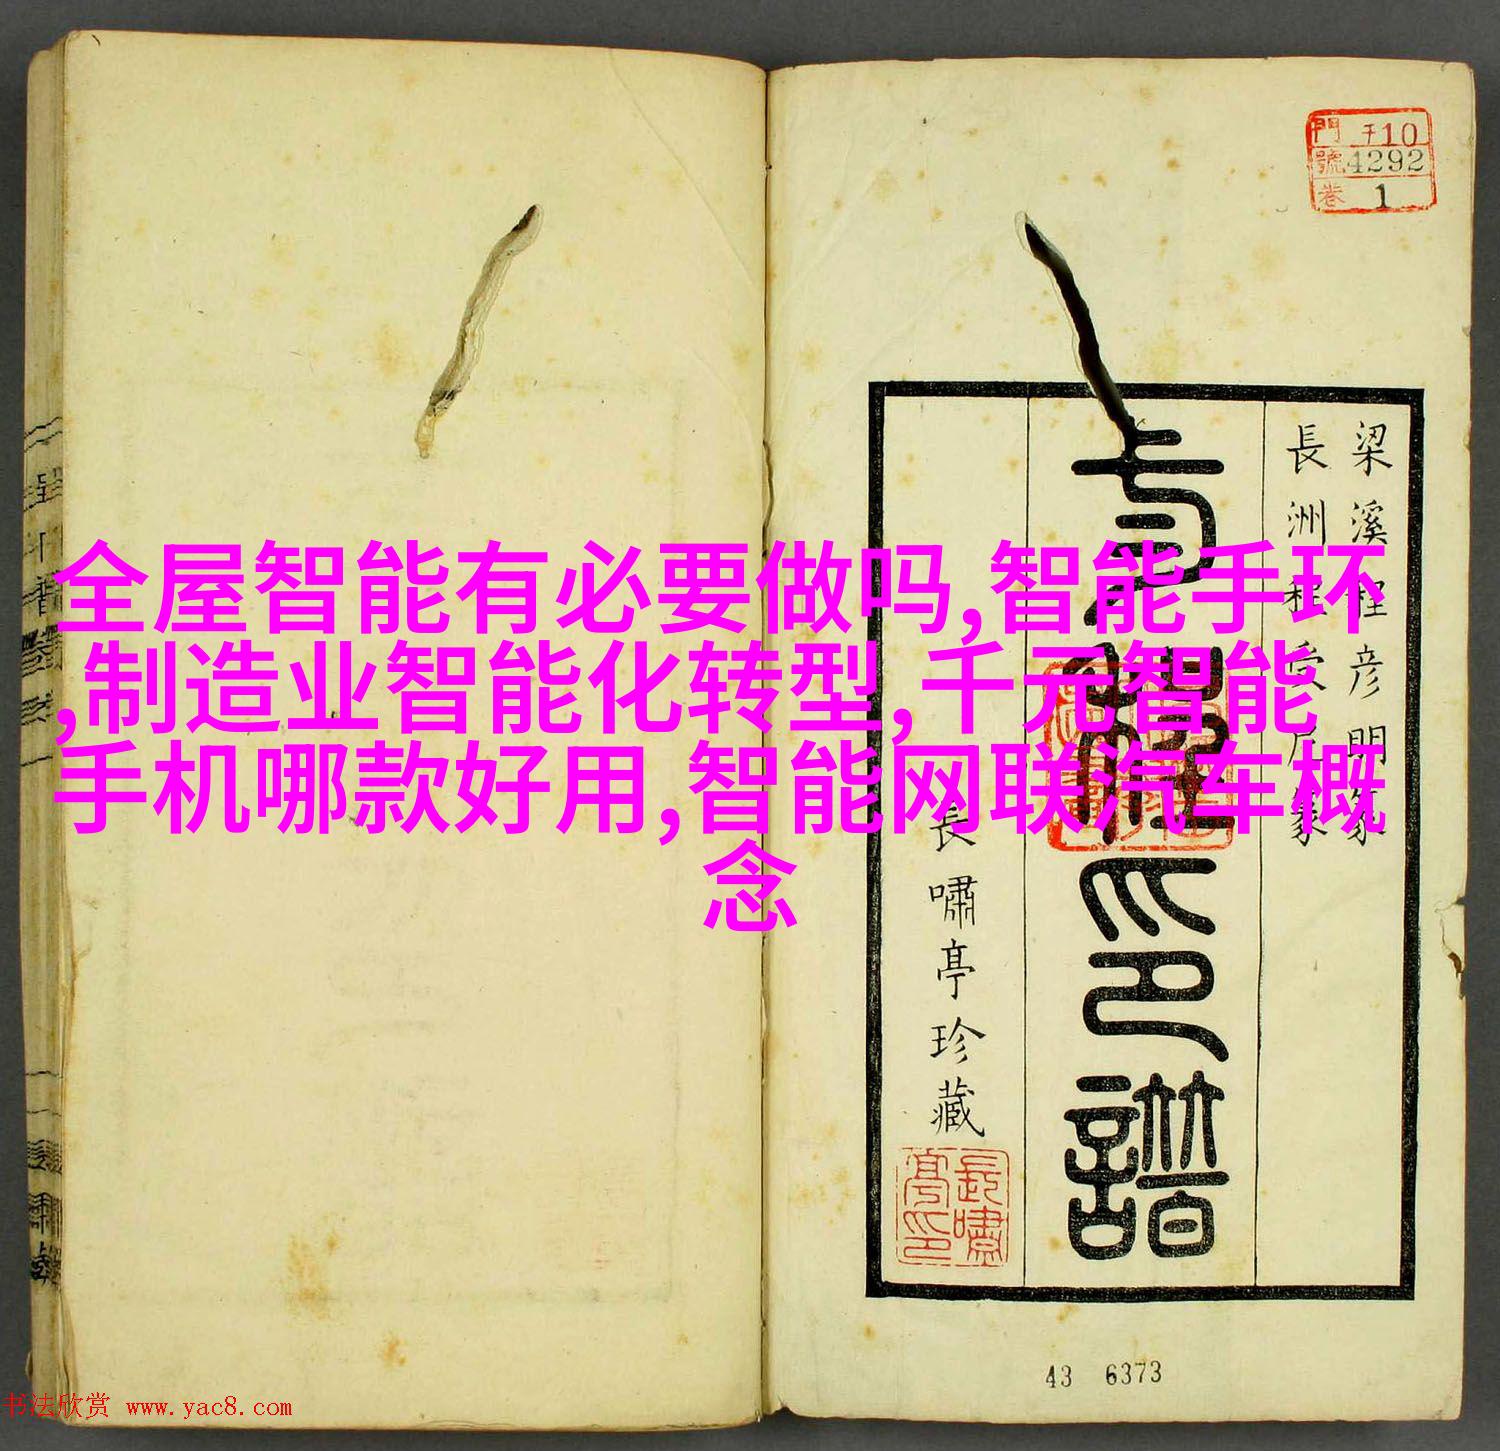 門 于10
號 4292
卷 1
梁溪程彦明篆
長洲程受尼篆
考槃印譜
長嘯亭珍藏
長嘯亭印
全屋智能有必要做吗,智能手环
,制造业智能化转型,千元智能
手机哪款好用,智能网联汽车概
念
43 6373
书法欣赏 www.yac8.com